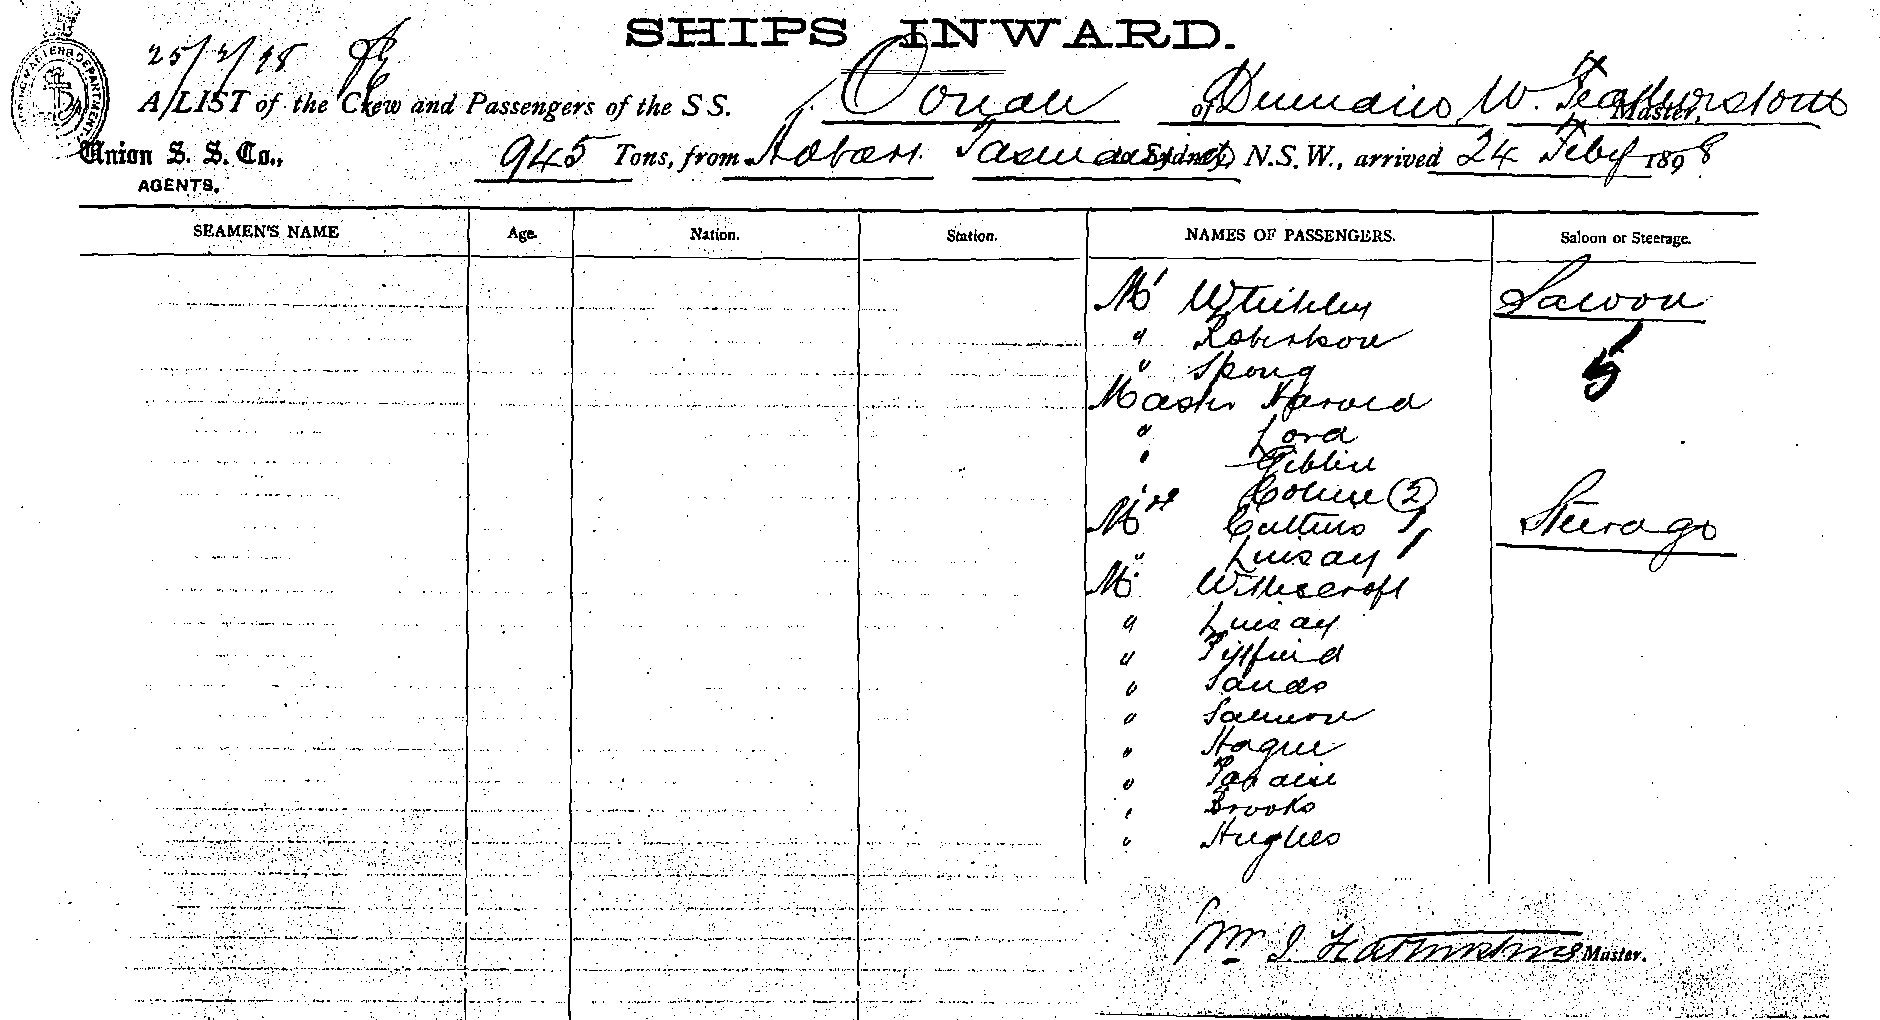 SHIPS INWARD.
25/2/98
A LIST of the Crew and Passengers of the S S. Oonah of Dunedin, W. Featherstone Master,
Union S. S. Co.,
AGENTS.
945 Tons, from Hobart Tasmania to Sydney, N.S.W., arrived 24 Feby 1898
SEAMEN'S NAME Age. Nation. Station. NAMES OF PASSENGERS. Saloon or Steerage.
Mr Saloon
" Robertson
" Spong 5
Master Harold
" Lord
" Giblin
(2)
Mrs Steerage
" Linsay 1
Mr
" Linsay
"
" Sands
" Salmon
" Hague
"
" Brooks
" Hughes
Wm J. Featherstone Master.